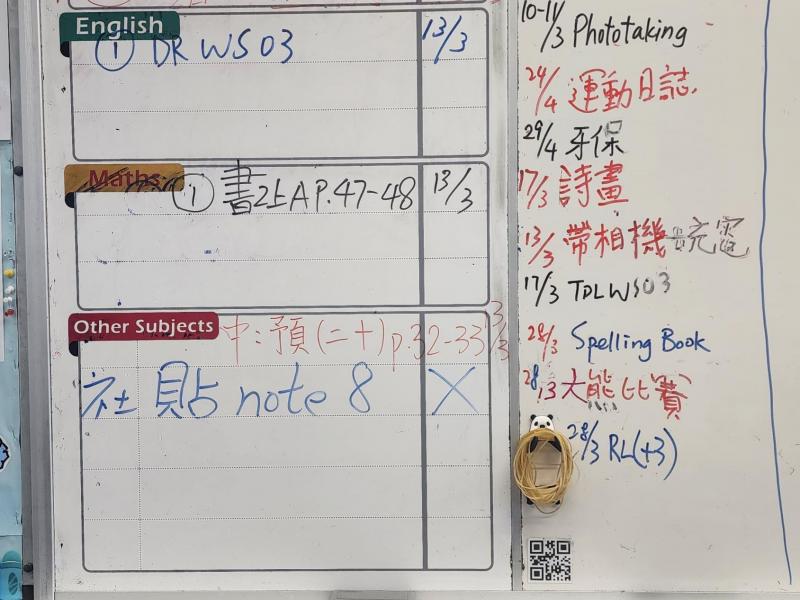 English
① DR WS 03 13/3
Maths
① 書2上A P.47-48 13/3
Other Subjects
中:預(二十)p.32-33 13/3
社 貼 note 8 X
10-11/3 Phototaking
24/4 運動日誌
29/4 牙保
17/3 詩畫
13/3 帶相機 充電
17/3 TDLWS03
28/3 Spelling Book
28/3 大能比賽
28/3 RL(+3)